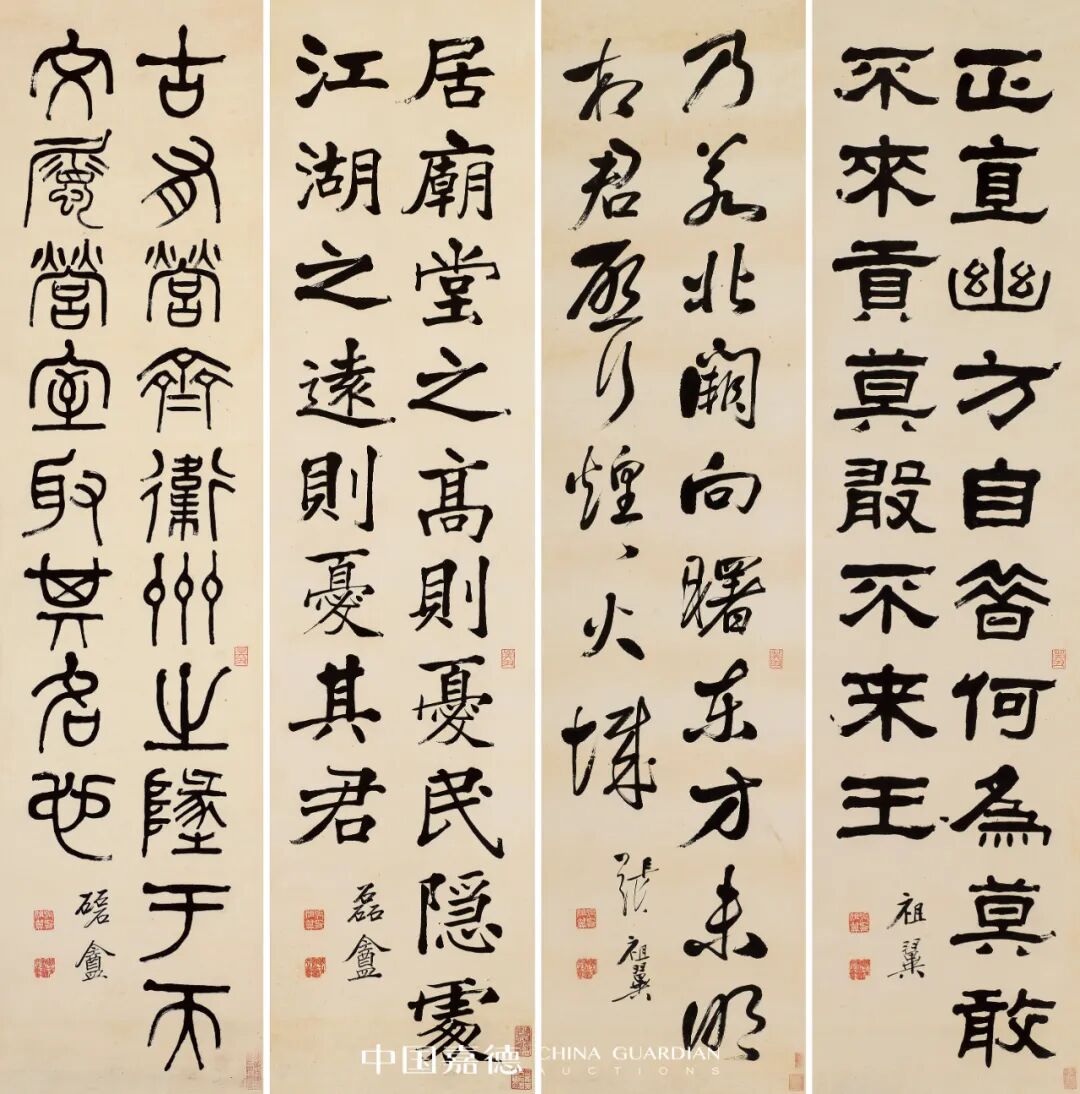 正直幽方自昝何為莫敢
不來貢莫敢不来王
祖翼
乃若北闕向曙東方未明
相君啓行煌、火城
張祖翼
居廟堂之高則憂民隱處
江湖之遠則憂其君
磊盦
古有營齊衛州之隧于天
文屬營室取其名也
磊盦
中国嘉德 CHINA GUARDIAN
AUCTIONS